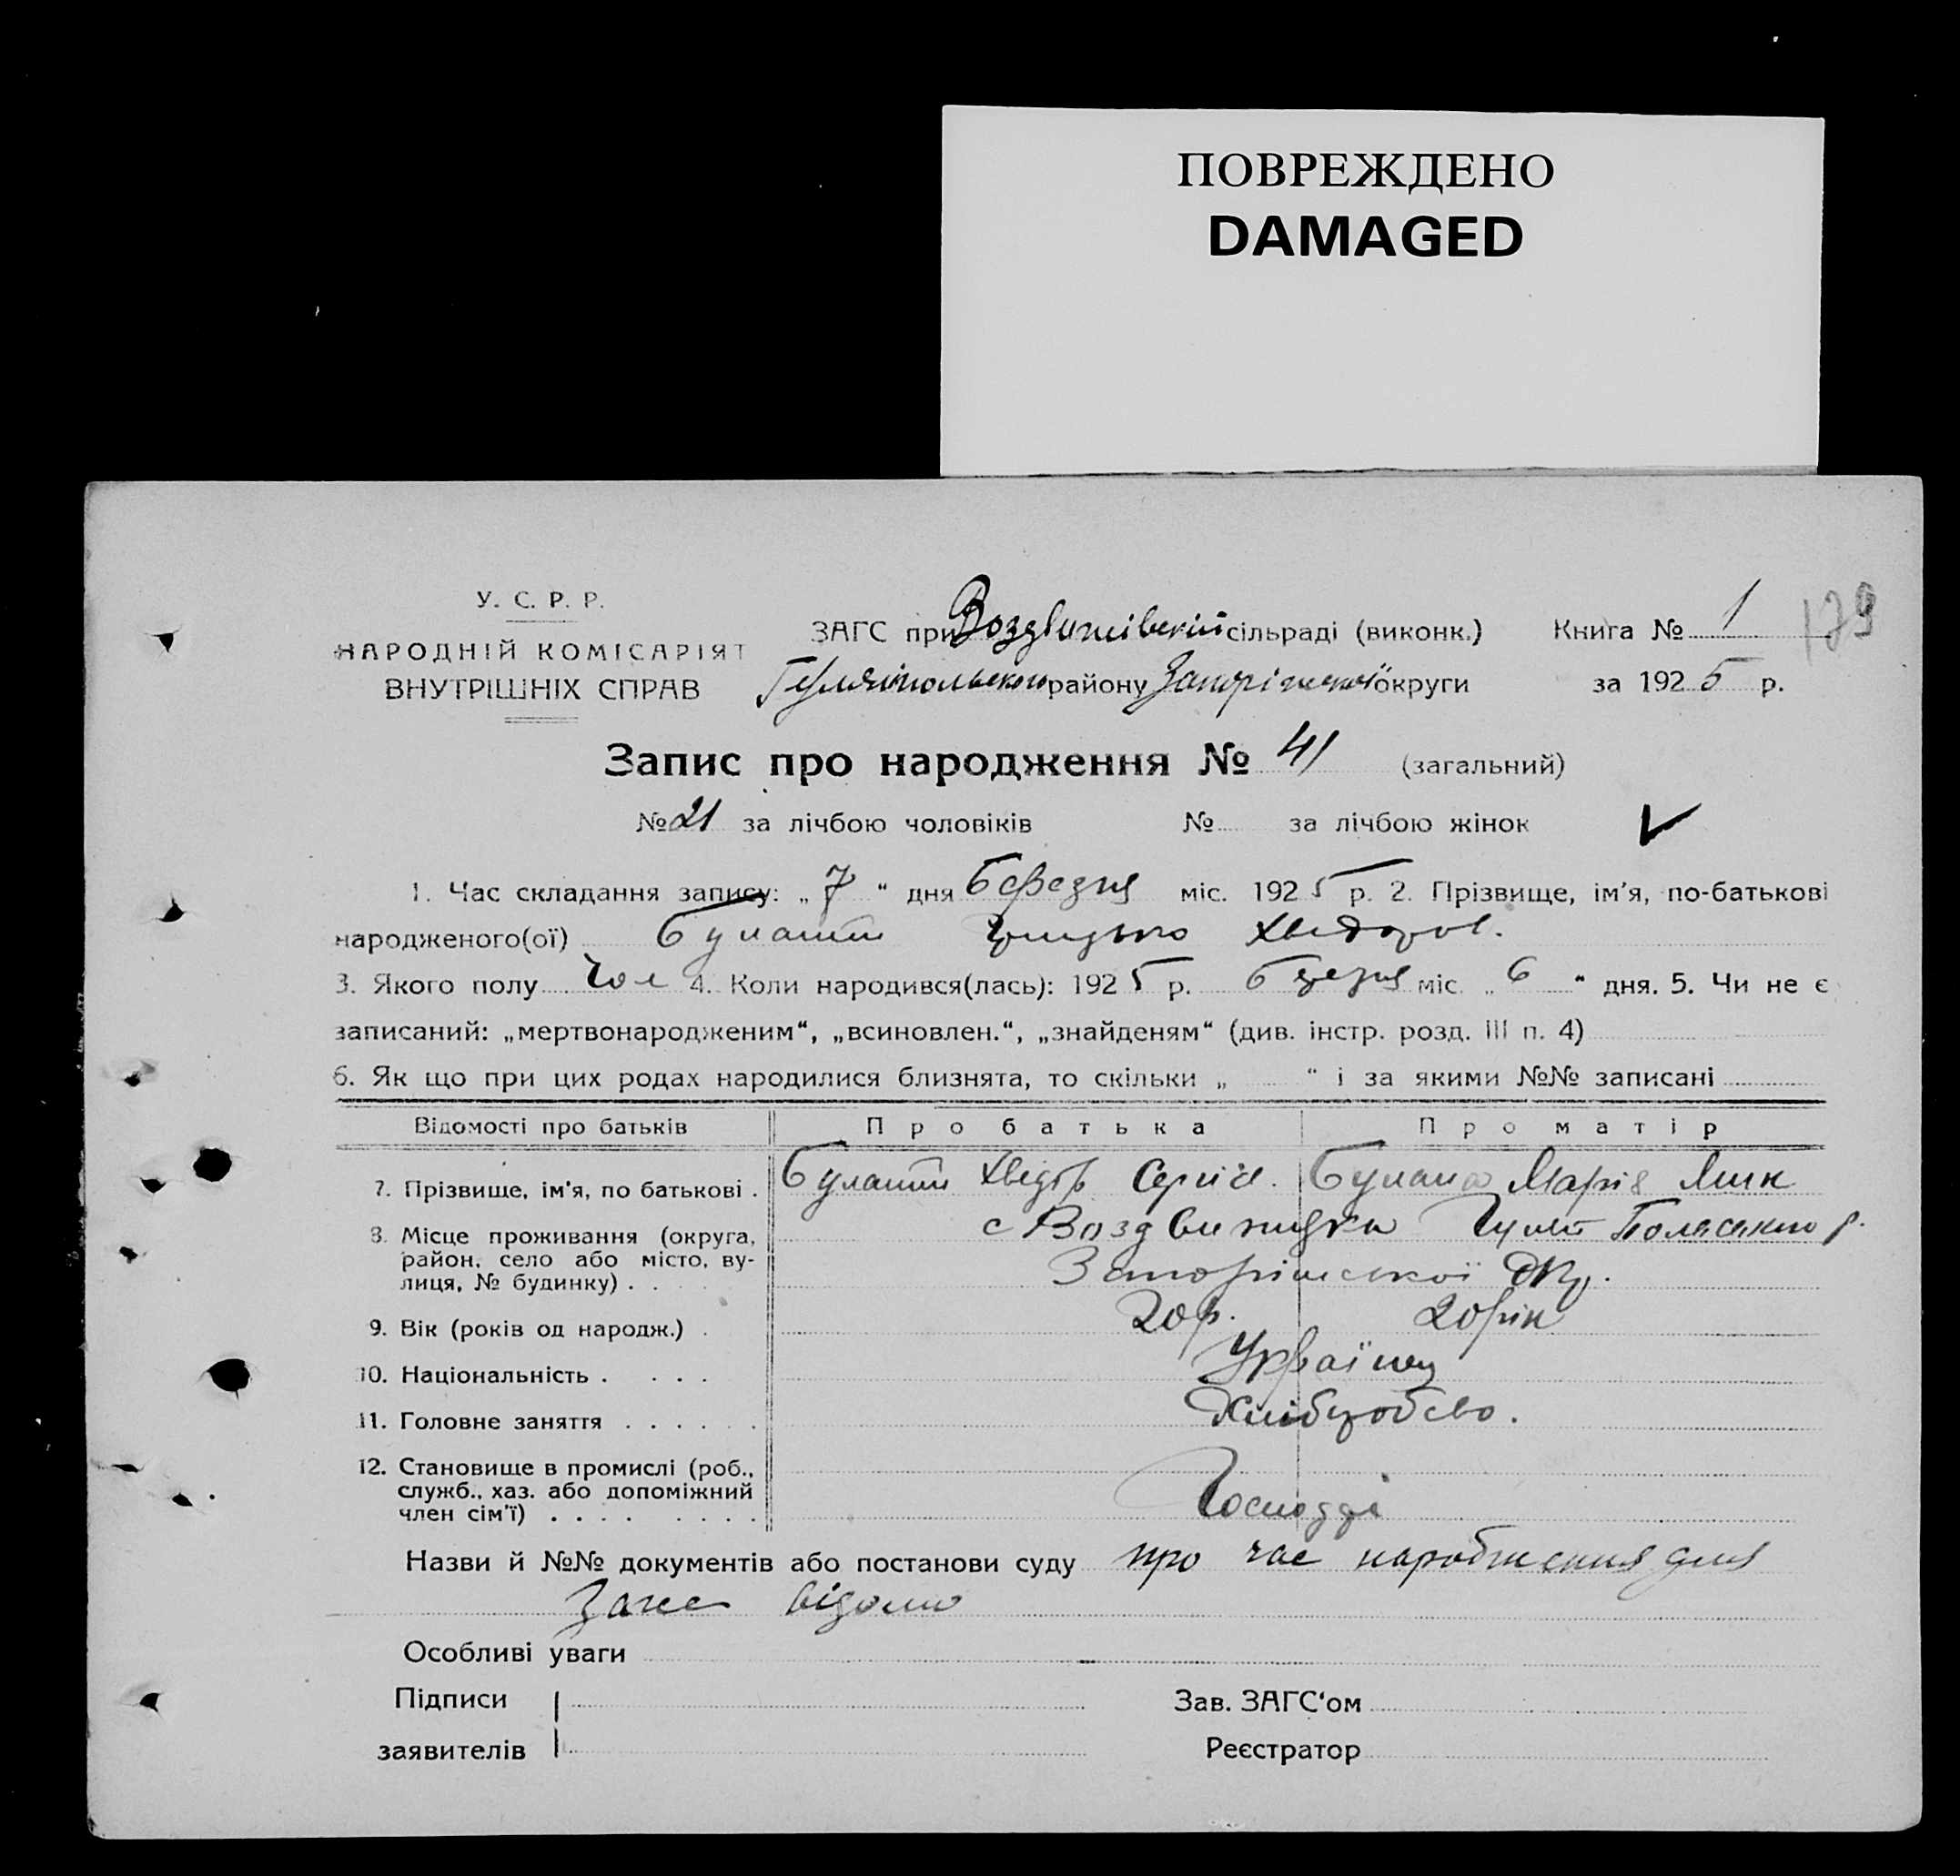 ПОВРЕЖДЕНО
DAMAGED
У. С. Р. Р.
НАРОДНІЙ КОМІСАРІЯТ
ВНУТРІШНІХ СПРАВ
ЗАГС при Воздвижівській сільраді (виконк.)
Книга № 1
179
Гуляйпольського району Запоріжської округи
за 192 5 р.
Запис про народження № 41 (загальний)
№ 21 за лічбою чоловіків № за лічбою жінок
1. Час складання запису: „ 7 “ дня березня міс. 192 5 р. 2. Прізвище, ім'я, по-батькові
народженого(ої) Грицько Хведоров.
3. Якого полу Чол 4. Коли народився(лась): 192 5 р. березня міс. „ 6 “ дня. 5. Чи не є
записаний: „мертвонародженим“, „всиновлен.“, „знайденям“ (див. інстр. розд. III п. 4)
6. Як що при цих родах народилися близнята, то скільки „ “ і за якими №№ записані
Відомості про батьків
Про батька
Про матір
7. Прізвище, ім'я, по батькові .
Хведір Сергіє.
Марія
8. Місце проживання (округа,
район, село або місто, ву-
лиця, № будинку) . .
с Воздвижівка
Запоріжської Окр.
9. Вік (років од народж.) .
20 р.
20 рік
10. Національність . . . .
Українці
11. Головне заняття . . . . . .
Хліборобсво.
12. Становище в промислі (роб.,
служб., хаз. або допоміжний
член сім'ї) . . . . . . . .
Господарі
Назви й №№ документів або постанови суду про час народження для
відомо
Особливі уваги
Підписи
заявителів
Зав. ЗАГС‘ом
Реєстратор